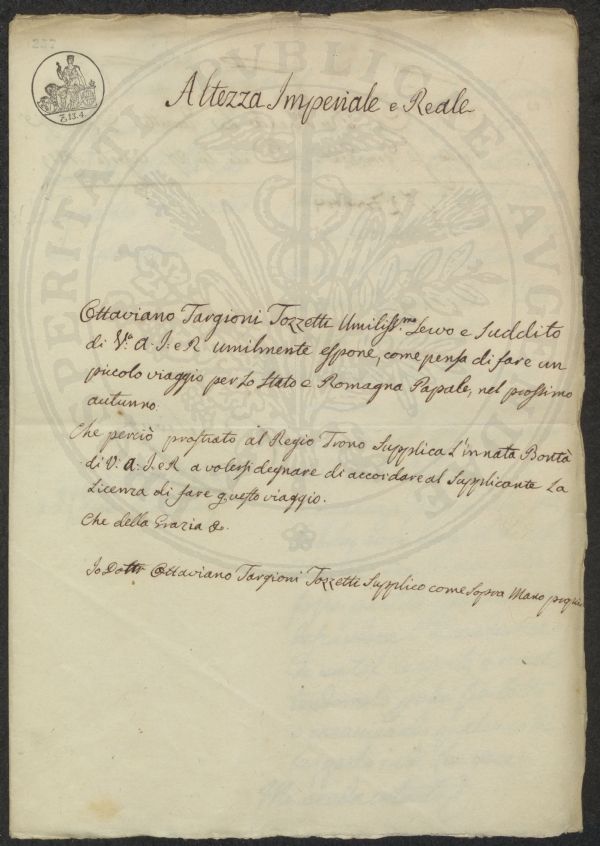 237
7.13.4.
Altezza Imperiale e Reale
Ottaviano Targioni Tozzetti Umiliss.mo Servo e Suddito
di V.a A. I. e R umilmente espone, come pensa di fare un
piccolo viaggio per lo Stato e Romagna Papale, nel prossimo
autunno.
Che perciò prostrato al Regio Trono Supplica L'innata Bontà
di V. A. I. e R a volersi degnare di accordare al Supplicante La
Licenza di fare questo viaggio.
Che della Grazia &.
Io Dott.r Ottaviano Targioni Tozzetti Supplico come Sopra Mano propria